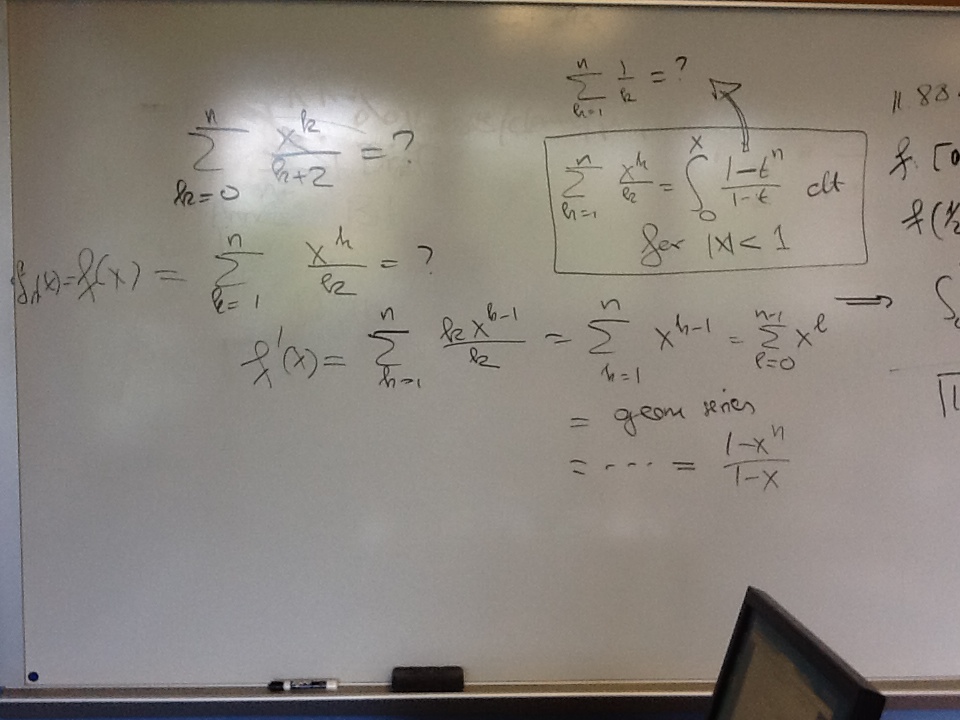 \sum_{k=1}^{n} \frac{1}{k} = ?
\sum_{k=0}^{n} \frac{x^k}{k+2} = ?
\sum_{k=1}^{n} \frac{x^k}{k} = \int_0^x \frac{1-t^n}{1-t} dt
for |x| < 1
f_n(x) = f(x) = \sum_{k=1}^{n} \frac{x^k}{k} = ?
f'(x) = \sum_{k=1}^{n} \frac{k x^{k-1}}{k} = \sum_{k=1}^{n} x^{k-1} = \sum_{l=0}^{n-1} x^l ⇒
= geom series
= ---- = \frac{1-x^n}{1-x}
11.88
f: [0
f(1/2